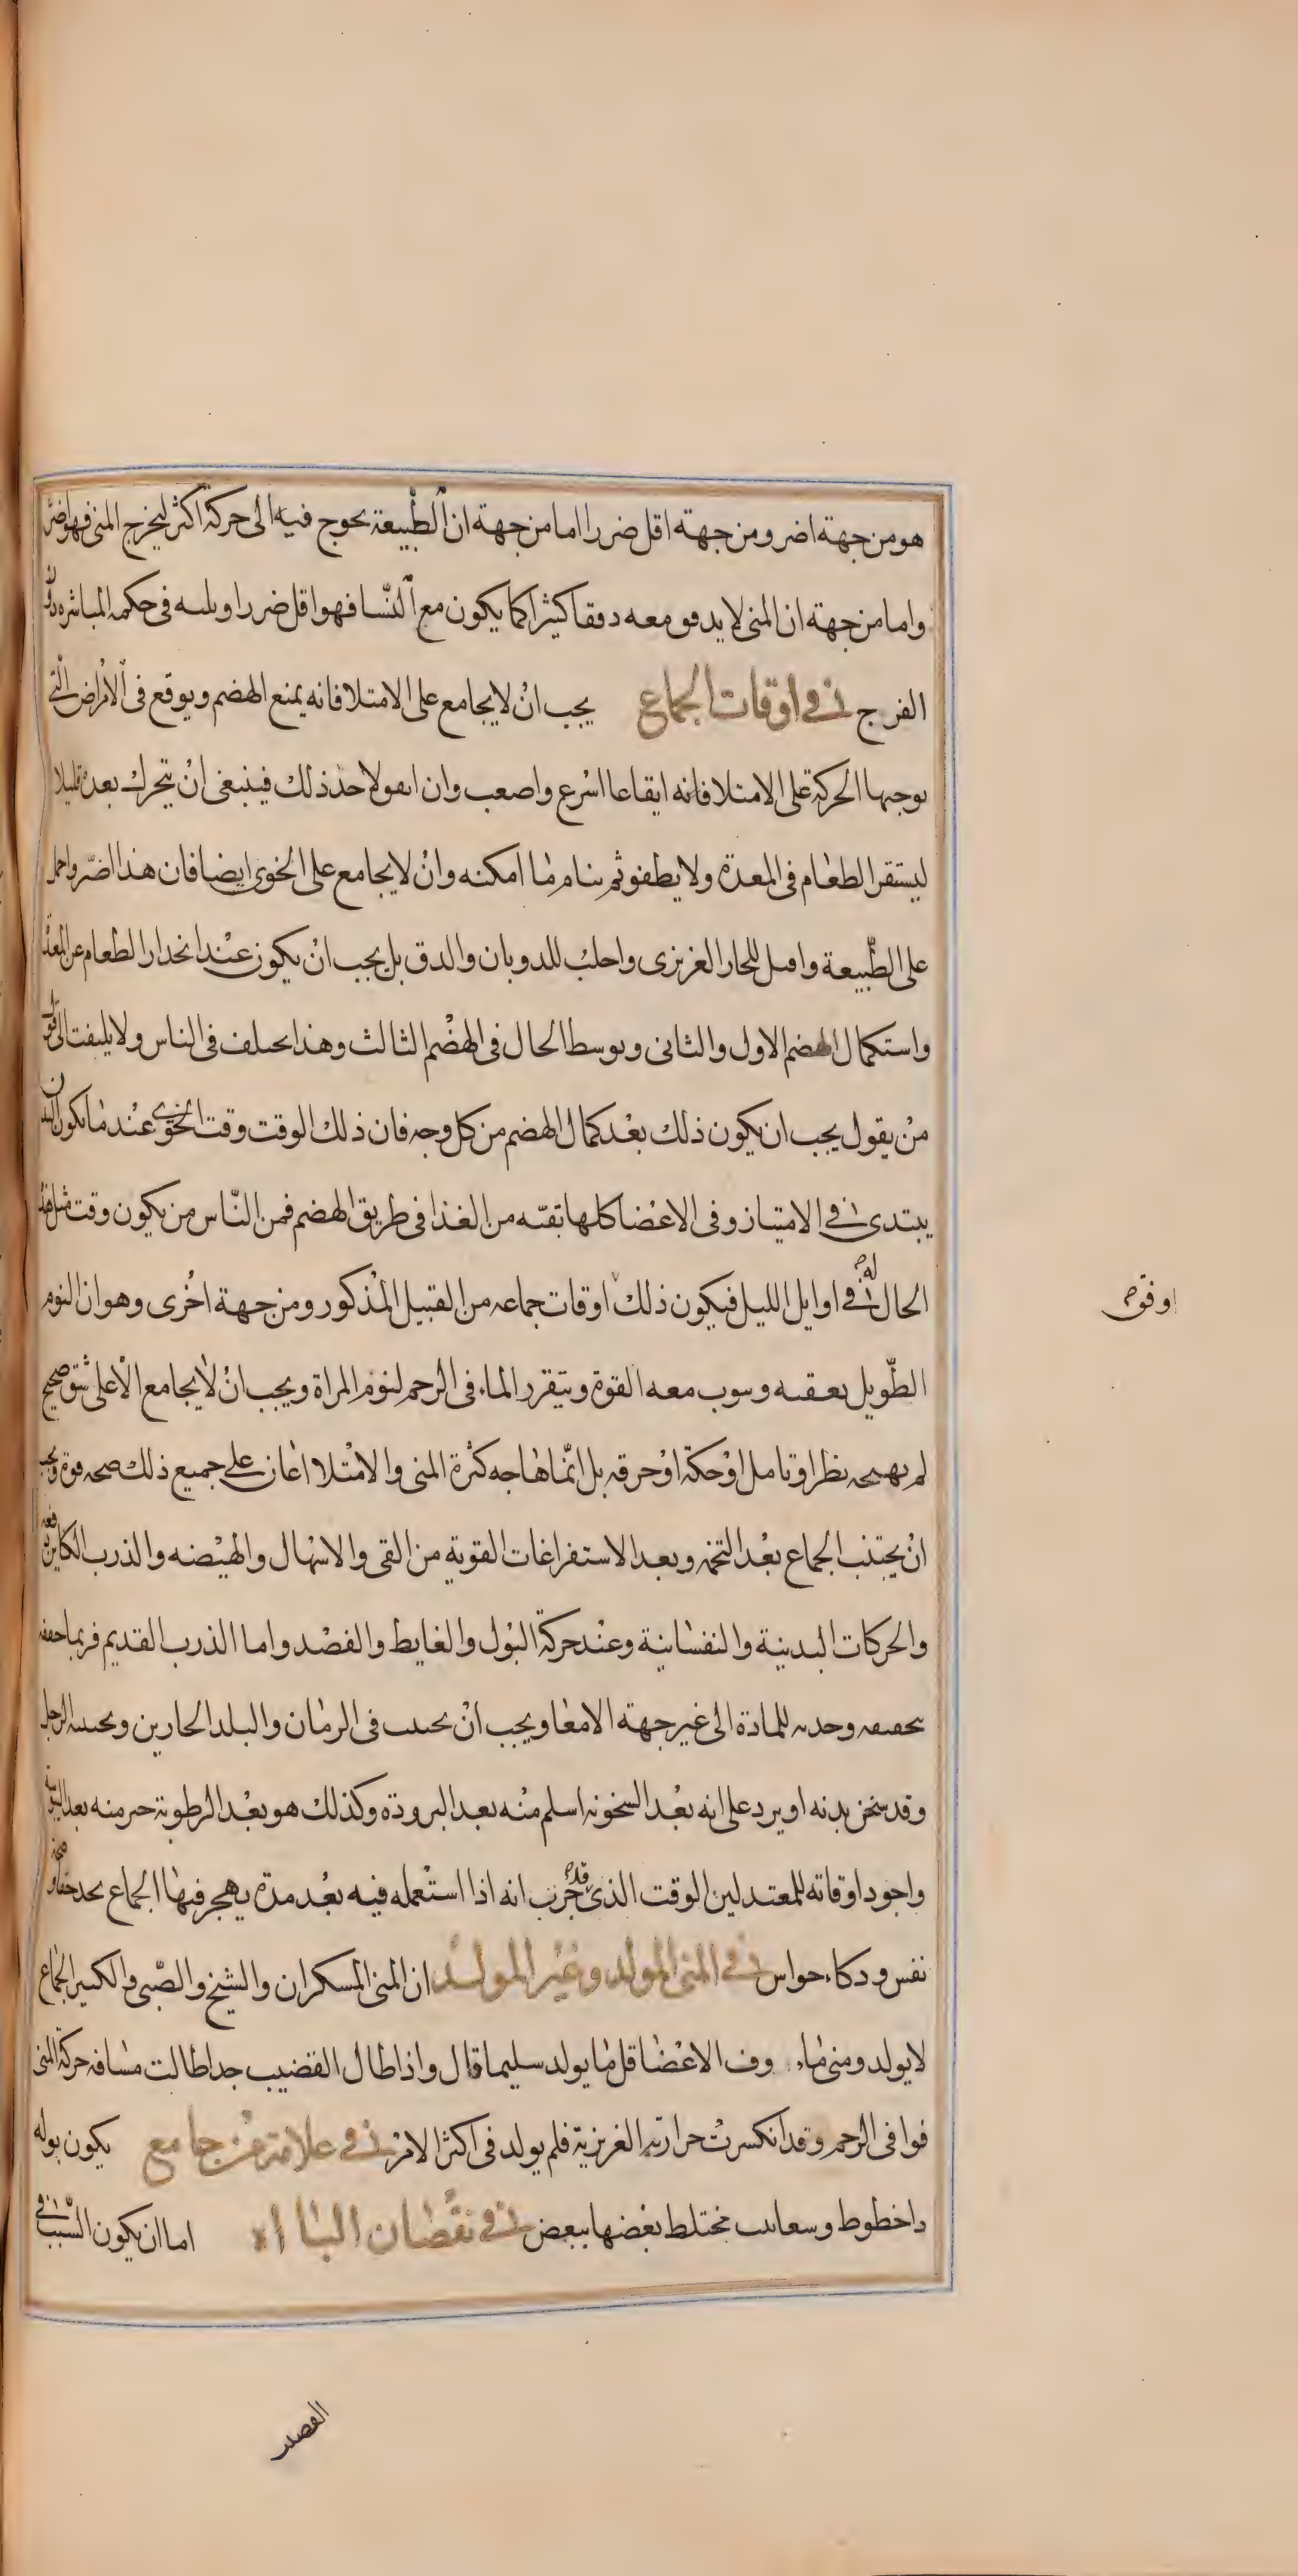 هو من جهة اضر ومن جهة اقل ضررا اما من جهة ان الطبيعة يحوج فيه الى حركة اكثر ليخرج المنى فهو اضر
واما من جهة ان المنى لا يدفق معه دفقا كثيرا كما يكون مع النسا فهو اقل ضررا ويليه فى حكمه المباشره دون
الفرج فى اوقات الجماع يجب ان لا يجامع على الامتلا فانه يمنع الهضم ويوقع فى الامراض التى
يوجبها الحركة على الامتلا فانه ايقاعا اسرع واصعب وان اتفق لاحد ذلك فينبغى ان يتحرك بعده قليلا
ليستقر الطعام فى المعدة ولا يطفو ثم ينام ما امكنه وان لا يجامع على الخوى ايضا فان هذا اضر واحمل
على الطبيعة واقتل للحار الغريزى واجلب للذوبان والدق بل يجب ان يكون عند انحدار الطعام عن المعدة
واستكمال الهضم الاول والثانى وتوسط الحال فى الهضم الثالث وهذا يختلف فى الناس ولا يلتفت الى قول
من يقول يجب ان يكون ذلك بعد كمال الهضم من كل وجه فان ذلك الوقت وقت الخوى عند ما يكون البدن
يبتدى فى الامتياز وفى الاعضا كلها بقيه من الغذا فى طريق الهضم فمن الناس من يكون وقت مثل هذه
الحال له فى اوايل الليل فيكون ذلك اوقات جماعه من القبيل المذكور ومن جهة اخرى وهو ان النوم
اوفق
الطويل يعقبه ويثوب معه القوة ويتقرر الماء فى الرحم لنوم المراة ويجب ان لا يجامع الا على شبق صحيح
لم يهيجه نظر او تامل او حكة او حرقه بل انما هاجه كثرة المنى والامتلا اعان على جميع ذلك صحه قوة ويجب
ان يجتنب الجماع بعد التخم وبعد الاستفراغات القوية من القى والاسهال والهيضه والذرب الكاين دفعه
والحركات البدنية والنفسانية وعند حركة البول والغايط والفصد واما الذرب القديم فربما جففه
بتجفيفه وجذبه للمادة الى غير جهة الامعا ويجب ان يجتنب فى الزمان والبلد الحارين ويجتنبه الرجل
وقد سخن بدنه او برد على انه بعد السخونه اسلم منه بعد البرودة وكذلك هو بعد الرطوبة خير منه بعد اليبوسة
واجود اوقاته للمعتدلين الوقت الذى قد جرب انه اذا استعمله فيه بعد مدة يهجر فيها الجماع يجد خفا وصحة
نفس وذكاء حواس فى المنى المولد وغير المولد ان المنى المسكران والشيخ والصبى والكثير الجماع
لا يولد ومنى ماء وف الاعضا قل ما يولد سليما قال واذا طال القضيب جدا طالت مسافه حركة المنى
فوافى الرحم وقد انكسرت حرارته الغريزية فلم يولد فى اكثر الامر فى علامة من جامع يكون بوله
ذا خطوط وشعاىىب مختلط بعضها ببعض فى نقصان الباه اما ان يكون السبب فى
القضيب